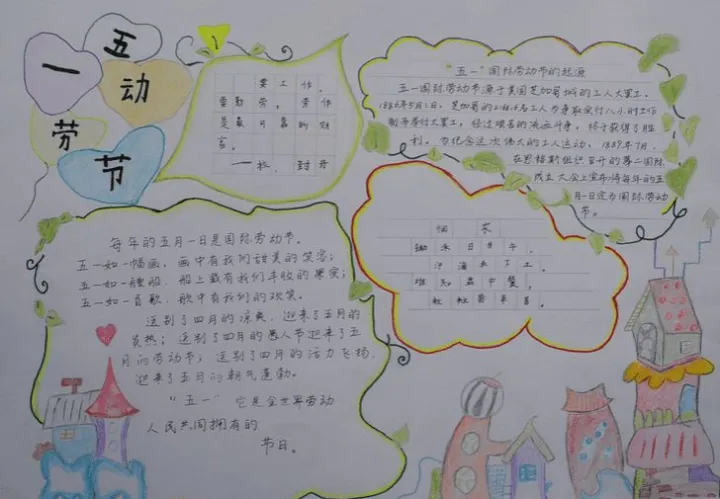 五一劳动节
要工作，
要勤劳，劳作
是最可靠的财
富。
——拉.封丹
“五一”国际劳动节的起源
五一国际劳动节源于美国芝加哥城的工人大罢工。
1886年5月1日，芝加哥的21.6万名工人为争取实行八小时工作
制而举行大罢工，经过艰苦的流血斗争，终于获得了胜
利。为纪念这次伟大的工人运动，1889年7月，
在恩格斯组织召开的第二国际
成立大会上宣布将每年的五
月一日定为国际劳动
节。
每年的五月一日是国际劳动节。
五一如一幅画，画中有我们甜美的笑容；
五一如一艘船，船上载有我们丰收的果实；
五一如一首歌，歌中有我们的欢笑。
送别了四月的凉爽，迎来了五月的
炎热；送别了四月的愚人节迎来了五
月的劳动节；送别了四月的活力飞扬，
迎来了五月的朝气蓬勃。
“五一”它是全世界劳动
人民共同拥有的
节日。
悯农
锄禾日当午，
汗滴禾下土。
谁知盘中餐，
粒粒皆辛苦。